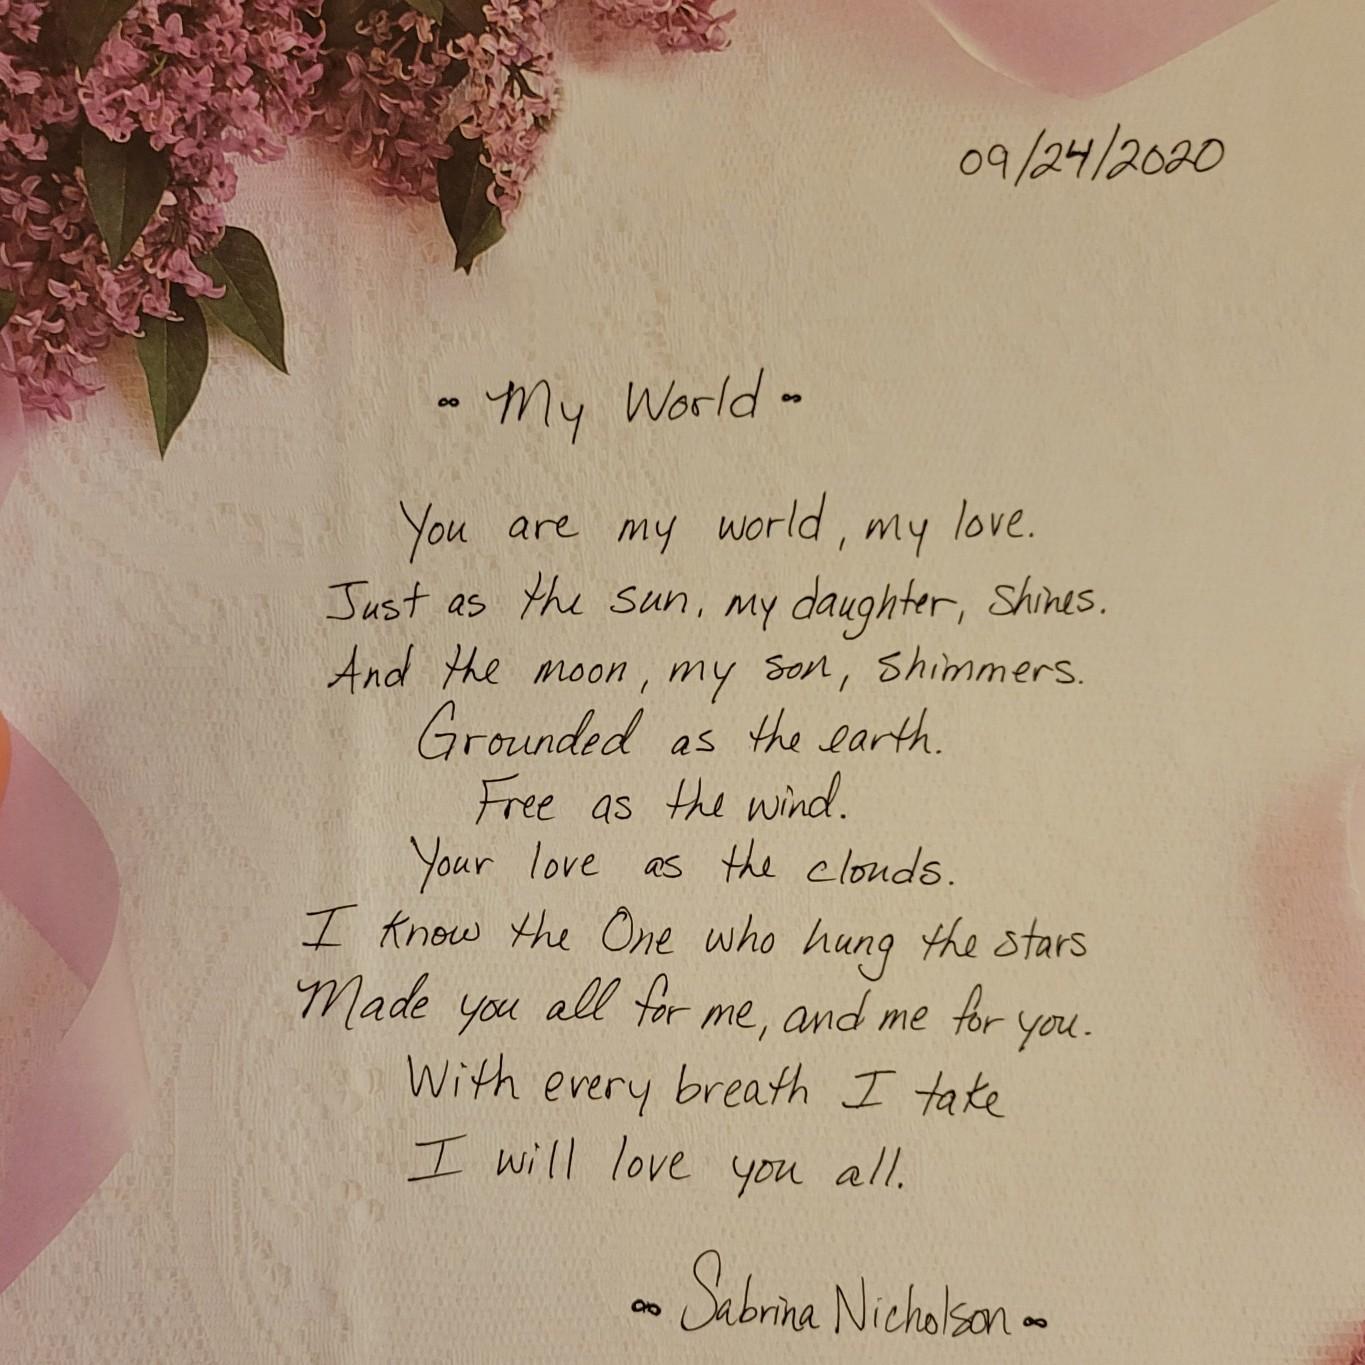 09/24/2020
∞ My World ∞
You are my world, my love.
Just as the sun, my daughter, shines.
And the moon, my son, shimmers.
Grounded as the earth.
Free as the wind.
Your love as the clouds.
I know the One who hung the stars
Made you all for me, and me for you.
With every breath I take
I will love you all.
∞ Sabrina Nicholson ∞